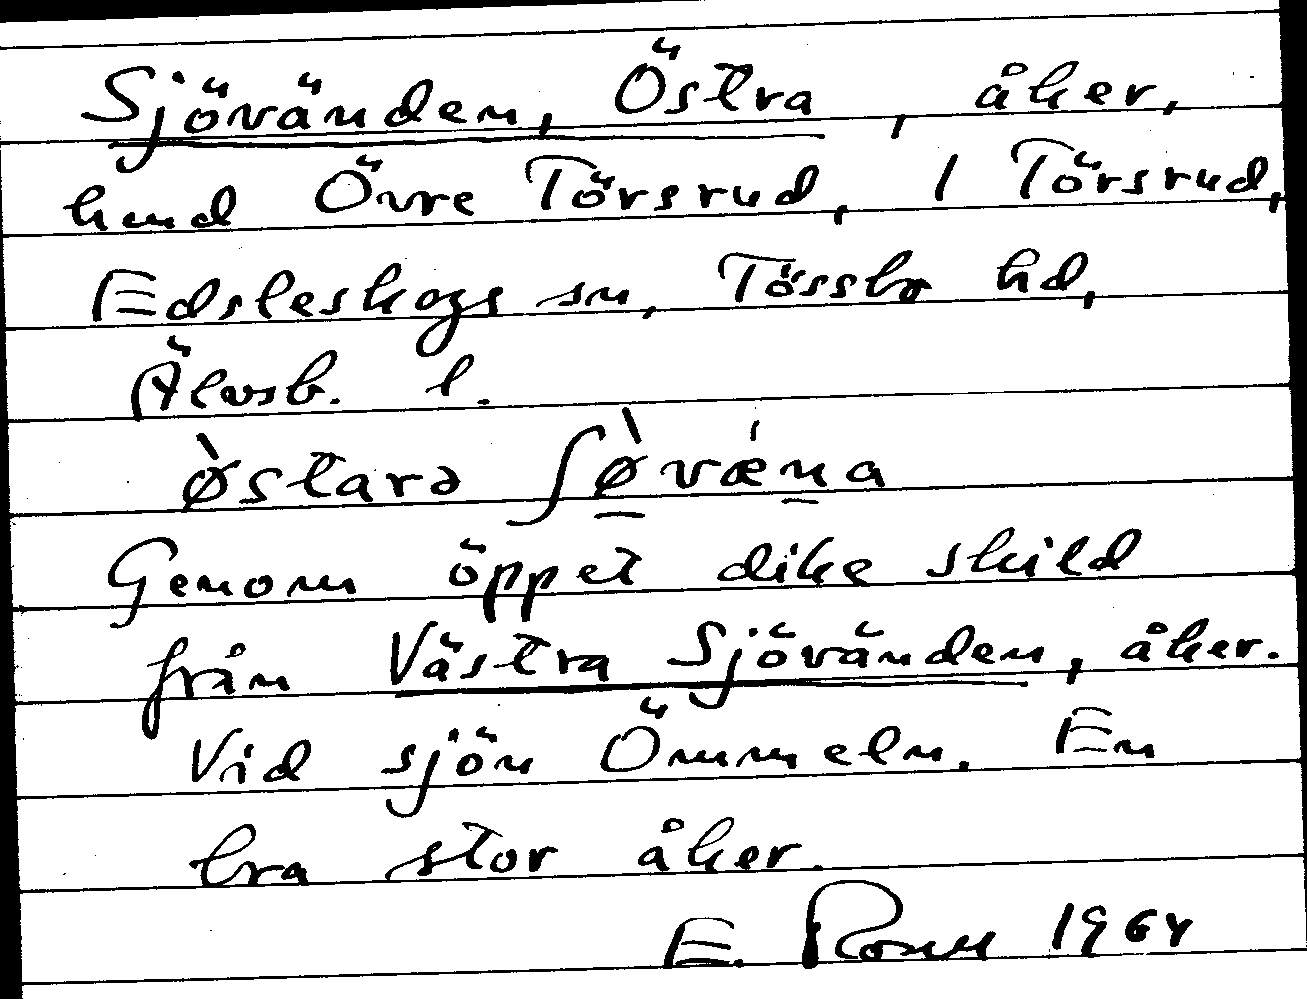 Sjövänden, Östra, åker,
hmd Övre Törsrud, 1 Törsrud,
Edsleskogs sn, Tössbo hd,
Älvsb. l.
ø̀starə ʃø̠̀vǽn̠a
Genom öppet dike skild
från Västra Sjövänden, åker.
Vid sjön Ömmeln. En
bra stor åker.
E. 1964